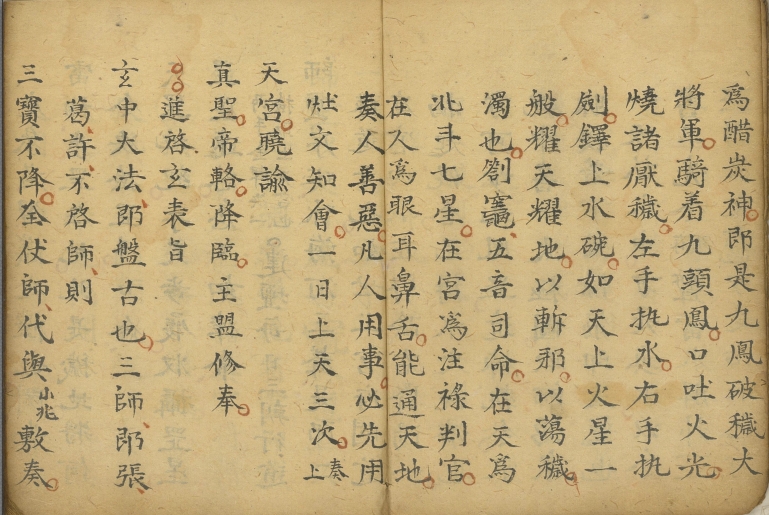 為醋炭神即是九鳳破穢大
將軍騎着九頭鳳口吐火光
燒諸厭穢左手执水右手执
劍鐸上水碗如天上火星一
般耀天耀地以斬邪以蕩穢
濁也劄竈五音司命在天為
北斗七星在宮為注祿判官
在人為眼耳鼻舌能通天地
奏人善惡凡人用事必先用
灶文知會一日上天三次奏上
天宮曉諭
真聖帝輅降臨主盟修奉
進啓玄表旨
玄中大法即盤古也三師即張
葛許不啓師則
三寶不降全仗師代與小兆敷奏